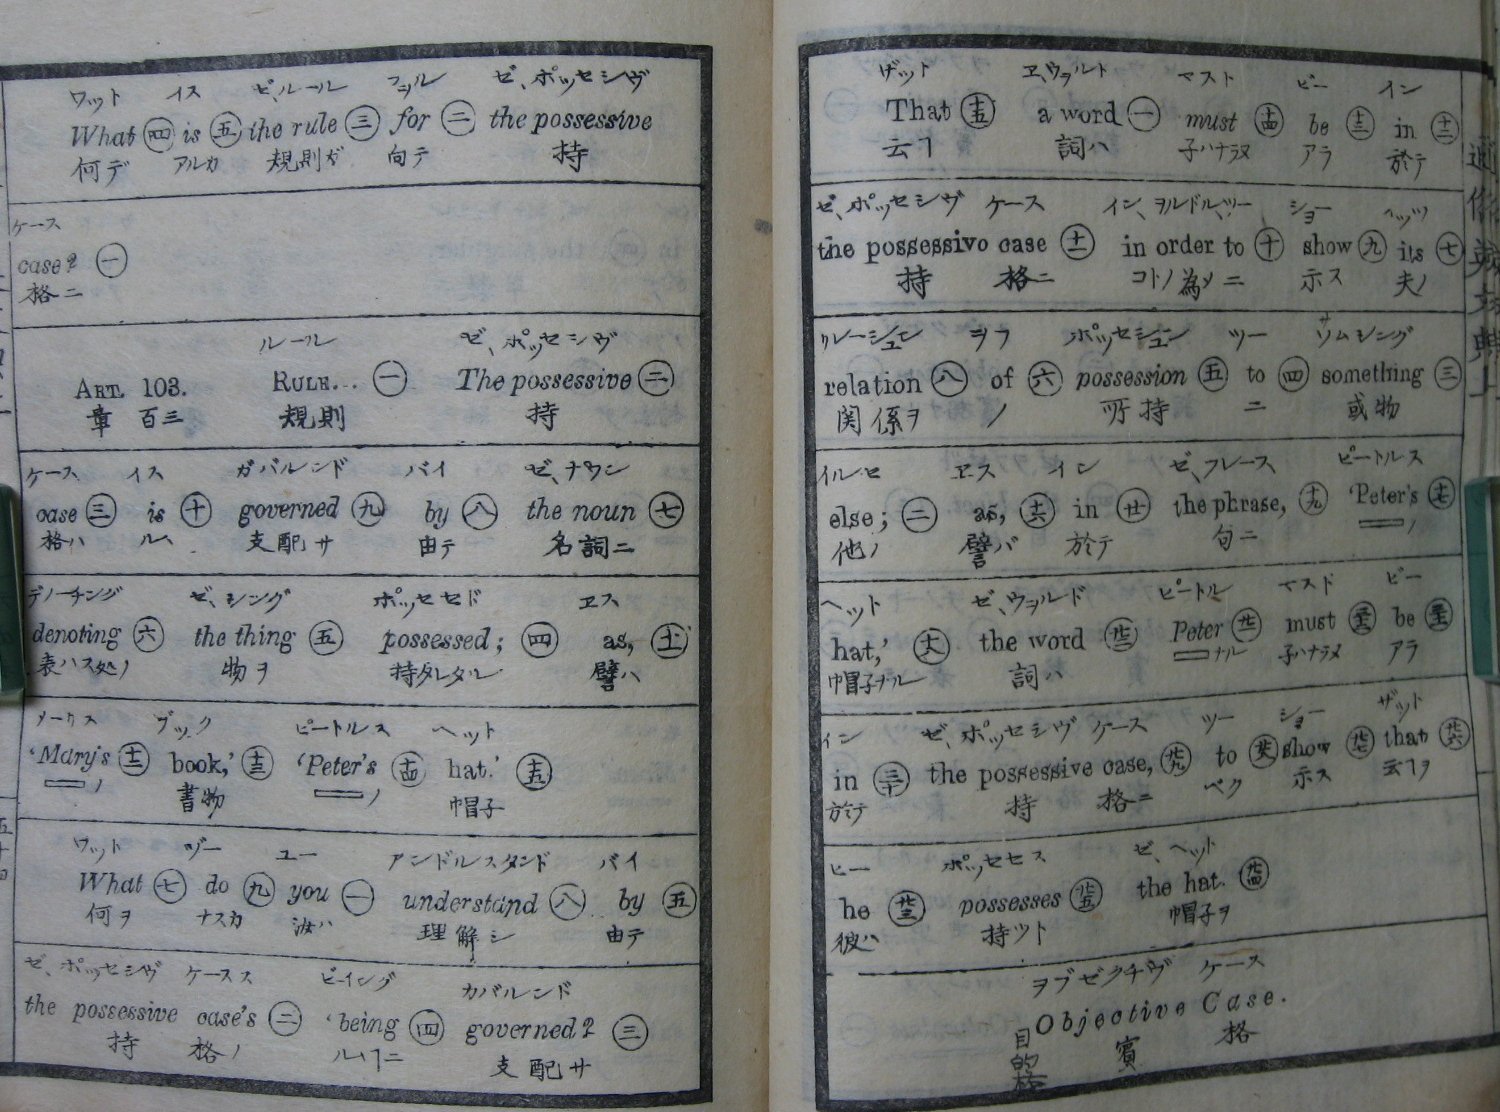 ワット イス ゼ、ルール フヲル ゼ、ポッセシヴ
What ㊃ is ㊄ the rule ㊂ for ㊁ the possessive
何デ アルカ 規則ガ 向テ 持
ケース
case? ㊀
格ニ
ルール ゼ、ポッセシヴ
ART. 103. RULE... ㊀ The possessive ㊁
章 百三 規則 持
ケース イス ガバルンド バイ ゼ、ナウン
case ㊂ is ㊉ governed ㊈ by ㊇ the noun ㊆
格ハ ルヽ 支配サ 由テ 名詞ニ
デノーチング ゼ、シング ポッセセド ヱス
denoting ㊅ the thing ㊄ possessed; ㊃ as, 十一
表ハス処ノ 物ヲ 持タレタル 譬ハ
メーリス ブック ピートルス ヘット
'Mary's 十二 book,' 十三 'Peter's 十四 hat.' 十五
ノ 書物 ノ 帽子
ワット ヅー ユー アンドルスタンド バイ
What ㊆ do ㊈ you ㊀ understand ㊇ by ㊄
何ヲ ナスカ 汝ハ 理解シ 由テ
ゼ、ポッセシヴ ケース ビーイング ガバルンド
the possessive case's ㊁ 'being ㊃ governed? ㊂
持 格ノ ルヽヿニ 支配サ
ザット ヱ、ウヲルト マスト ビー イン
That 十五 a word ㊀ must 十四 be 十三 in 十二
云ヿ 詞ハ 子ハナラヌ アラ 於テ
ゼ、ポッセシヴ ケース イン、ヲルドル、ツー ショー ヘッツ
the possessive case 十一 in order to ㊉ show ㊈ its ㊆
持 格ニ コトノ為メニ 示ス 夫ノ
リレーシュン ヲフ ポッセシュン ツー ソムシング
relation ㊇ of ㊅ possession ㊄ to ㊃ something ㊂
関係ヲ ノ 所持 ニ 或物
イルセ ヱス イン ゼ、フレース ピートルス
else; ㊁ as, 十六 in 廿 the phrase, 十九 'Peter's 十七
他ノ 譬バ 於テ 句ニ ノ
ヘット ゼ、ウヲルド ピートル マスト ビー
hat,' 十八 the word 廿二 Peter 廿一 must be
帽子ナル 詞ハ ナル 子ハナラヌ アラ
イン ゼ、ポッセシヴ ケース ツー ショー ザット
in 三十 the possessive case, 廿九 to 廿八 show 廿七 that 廿六
於テ 持 格ニ ベク 示ス 云ヿヲ
ヒー ポッセセス ゼ、ヘット
he 廿三 possesses 廿五 the hat. 廿四
彼ハ 持ツト 帽子ヲ
ヲブゼクチヴ ケース
Objective Case.
目的格 賓 格
五十四